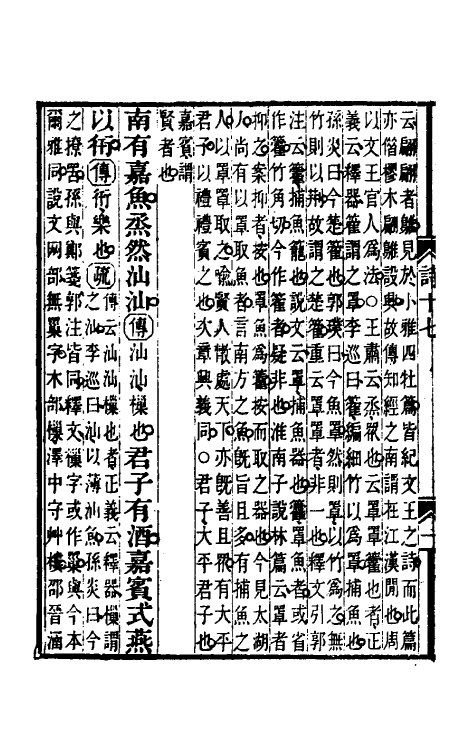 云翩翩者鵻見於小雅四牡篇皆紀文王之詩而此篇
亦偕樛木翩鵻設興故傳知經之南謂在江漢閒也周
以文王官人爲法○王肅云烝眾也云罩罩籗也者正
義云釋器籗謂之罩李巡曰籗編細竹以爲罩捕魚也
孫炎曰今楚籗也郭璞曰今魚罩然則罩以竹爲之無
竹則以荊故謂之楚籗重云罩罩者非一也釋文引郭
注云籗捕魚籠也說文云罩捕魚器也籱罩魚者或省
作籗竹角切今作篧者疑非也淮南子說林篇云罩者
抑之罧抑者按也罩魚爲籗按而取之器也今見太湖
人尚有以罩取魚者言南方之魚旣旨且多有捕魚之
人以罩罩取之喻賢人處天下亦旣善且眾有大平
君子以禮禮賓之也次章興義同○君子大平君子也
嘉賓謂
賢者也
南有嘉魚烝然汕汕傳汕汕樔也君子有酒嘉賓式燕
以衎傳衎樂也疏傳云汕汕樔也者正義云釋器樔謂
之汕李巡曰汕以薄汕魚孫炎曰今
之撩罟孫與鄭箋郭注皆同釋文樔字或作罺與今本
爾雅同說文网部無罺字木部樔澤中守艸樓邵晉涵
詩十七
二